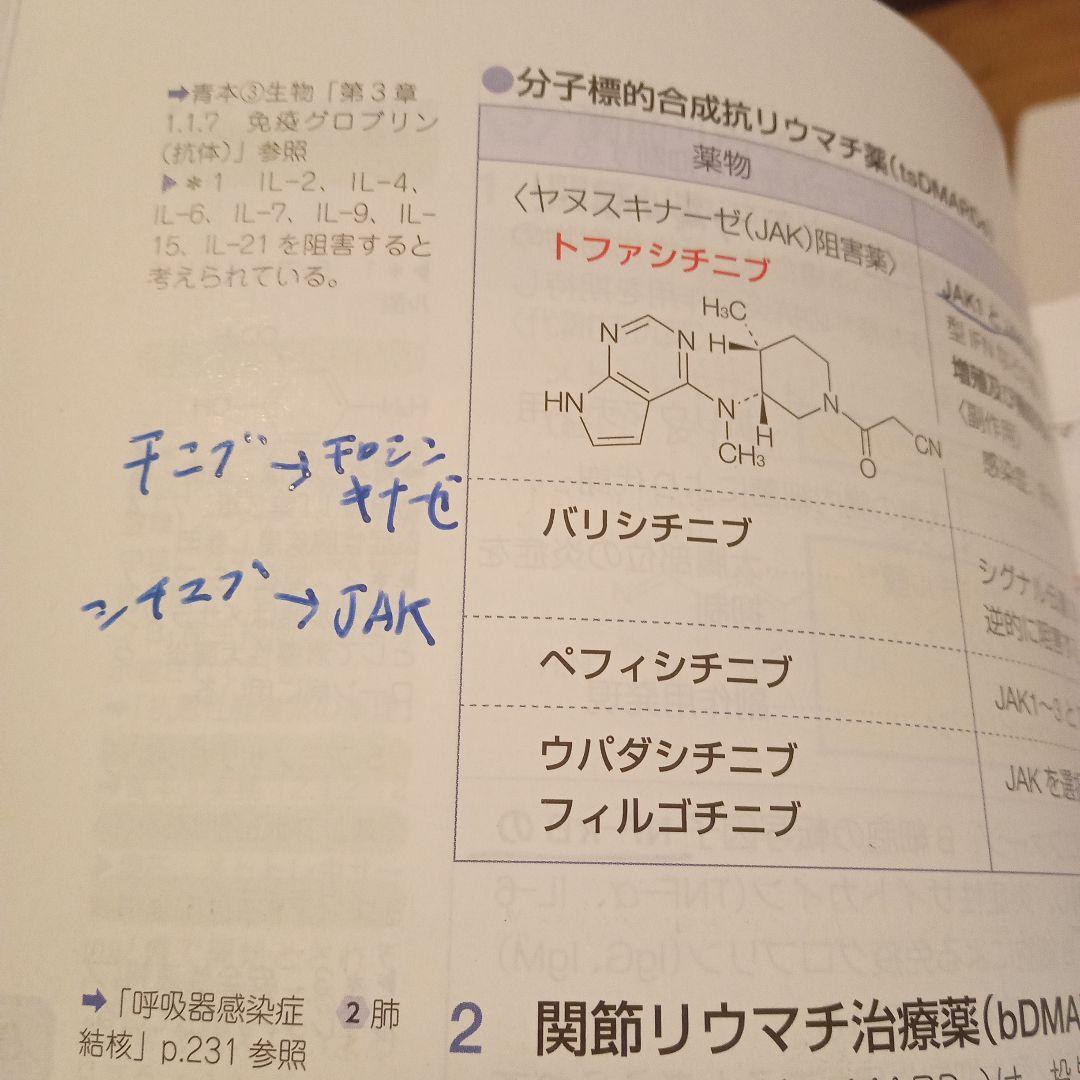 ➡青本③生物「第3章
1.1.7 免疫グロブリン
(抗体)」参照
▶*1 IL-2、IL-4、
IL-6、IL-7、IL-9、IL-
15、IL-21を阻害すると
考えられている。
チニブ→チロシン
キナーゼ
シチニブ→JAK
➡「呼吸器感染症 2 肺
結核」p.231 参照
●分子標的合成抗リウマチ薬(tsDMARDs
薬物
〈ヤヌスキナーゼ(JAK)阻害薬〉
トファシチニブ
H₃C
N
N
H
HN
N
H
N
CH₃
O
CN
JAK1と
型IFN
増殖及び
〈副作用〉
感染症
バリシチニブ
シグナル
逆的に阻害
ペフィシチニブ
JAK1~3と
ウパダシチニブ
JAKを選
フィルゴチニブ
2 関節リウマチ治療薬(bDMA